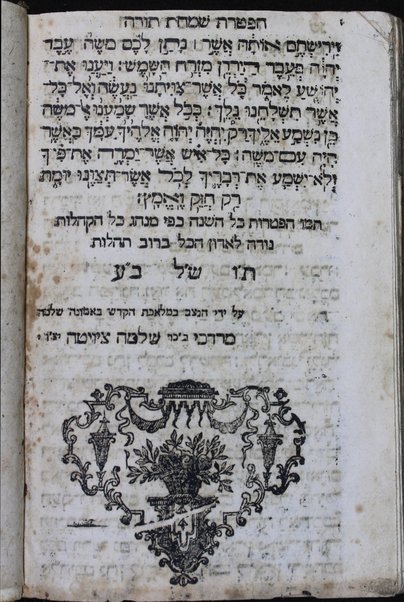 הפטרת שמחת תורה
וירשתם אותה אשר נתן לכם משה עבד
יהוה בעבר הירדן מזרח השמש: ויענו את־
יהושע לאמר כל אשר־צויתנו נעשה ואל־כל־
אשר תשלחנו נלך: ככל אשר שמענו אל־משה
כן נשמע אליך רק יהיה יהוה אלהיך עמך כאשר
היה עם־משה: כל־איש אשר־ימרה את־פיך
ולא־ישמע את־דבריך לכל אשר־תצונו יומת
רק חזק ואמץ:
תמו הפטרות כל השנה כפי מנהג כל הקהלות
נודה לאדון הכל ברוב תהלות
ת'ו ש'ל ב'ע
על ידי הנצב במלאכת הקדש באמונה שלמה
מרדכי ב'כר שלמה ציויטה יצ'ו